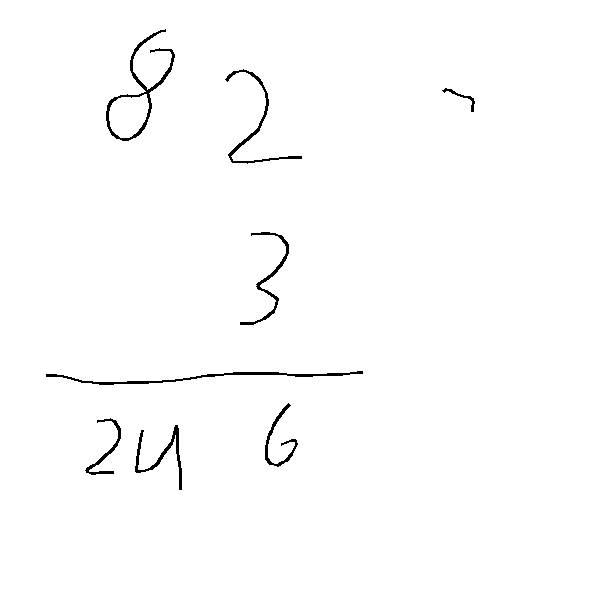 82
3
246